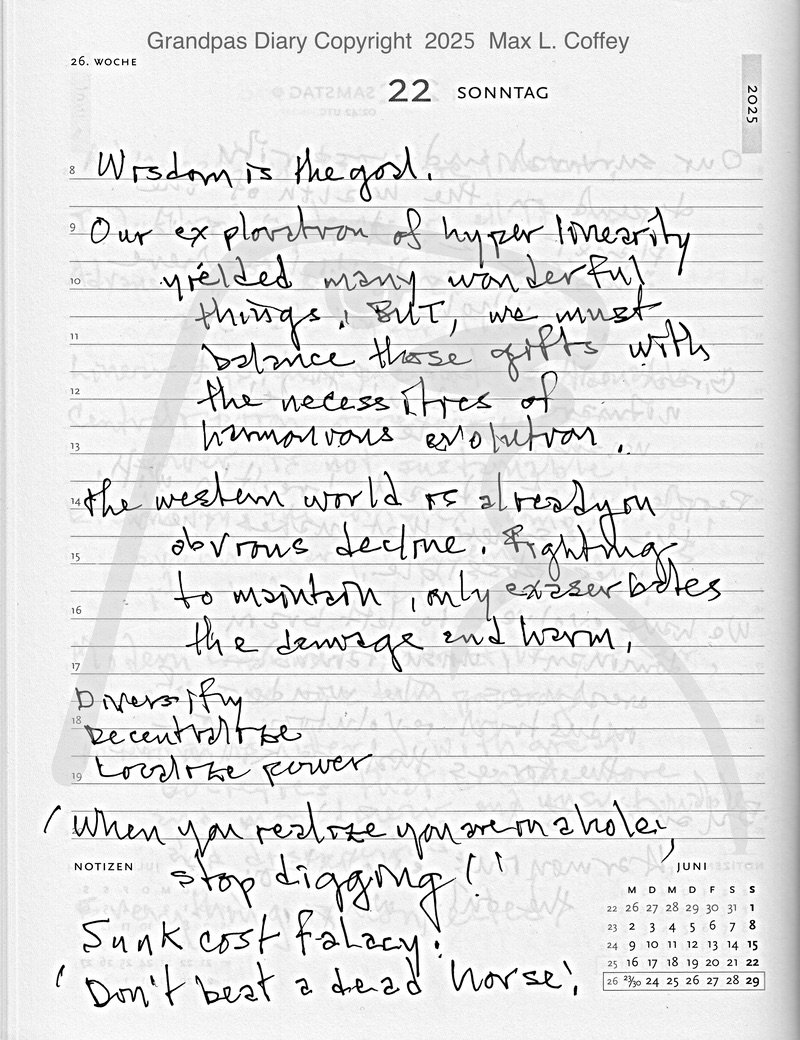 Grandpas Diary Copyright 2025 Max L. Coffey
26. WOCHE
22 SONNTAG
2025
8 Wisdom is the goal.
9 Our exploration of hyper linearity
10 yielded many wonderful
things. BUT, we must
11 balance those gifts with
12 the necessities of
13 harmonious evolution.
14 the western world is already in
obvious decline. Fighting
15 to maintain, only exaserbates
16 the damage and harm.
17
Diversify
18 Decentralize
19 Localize power
'When you realize you are in a hole,
NOTIZEN
stop digging!'
Sunk cost falacy.
'Don't beat a dead horse'.
JUNI
M D M D F S S
22 26 27 28 29 30 31 1
23 2 3 4 5 6 7 8
24 9 10 11 12 13 14 15
25 16 17 18 19 20 21 22
26 23/30 24 25 26 27 28 29